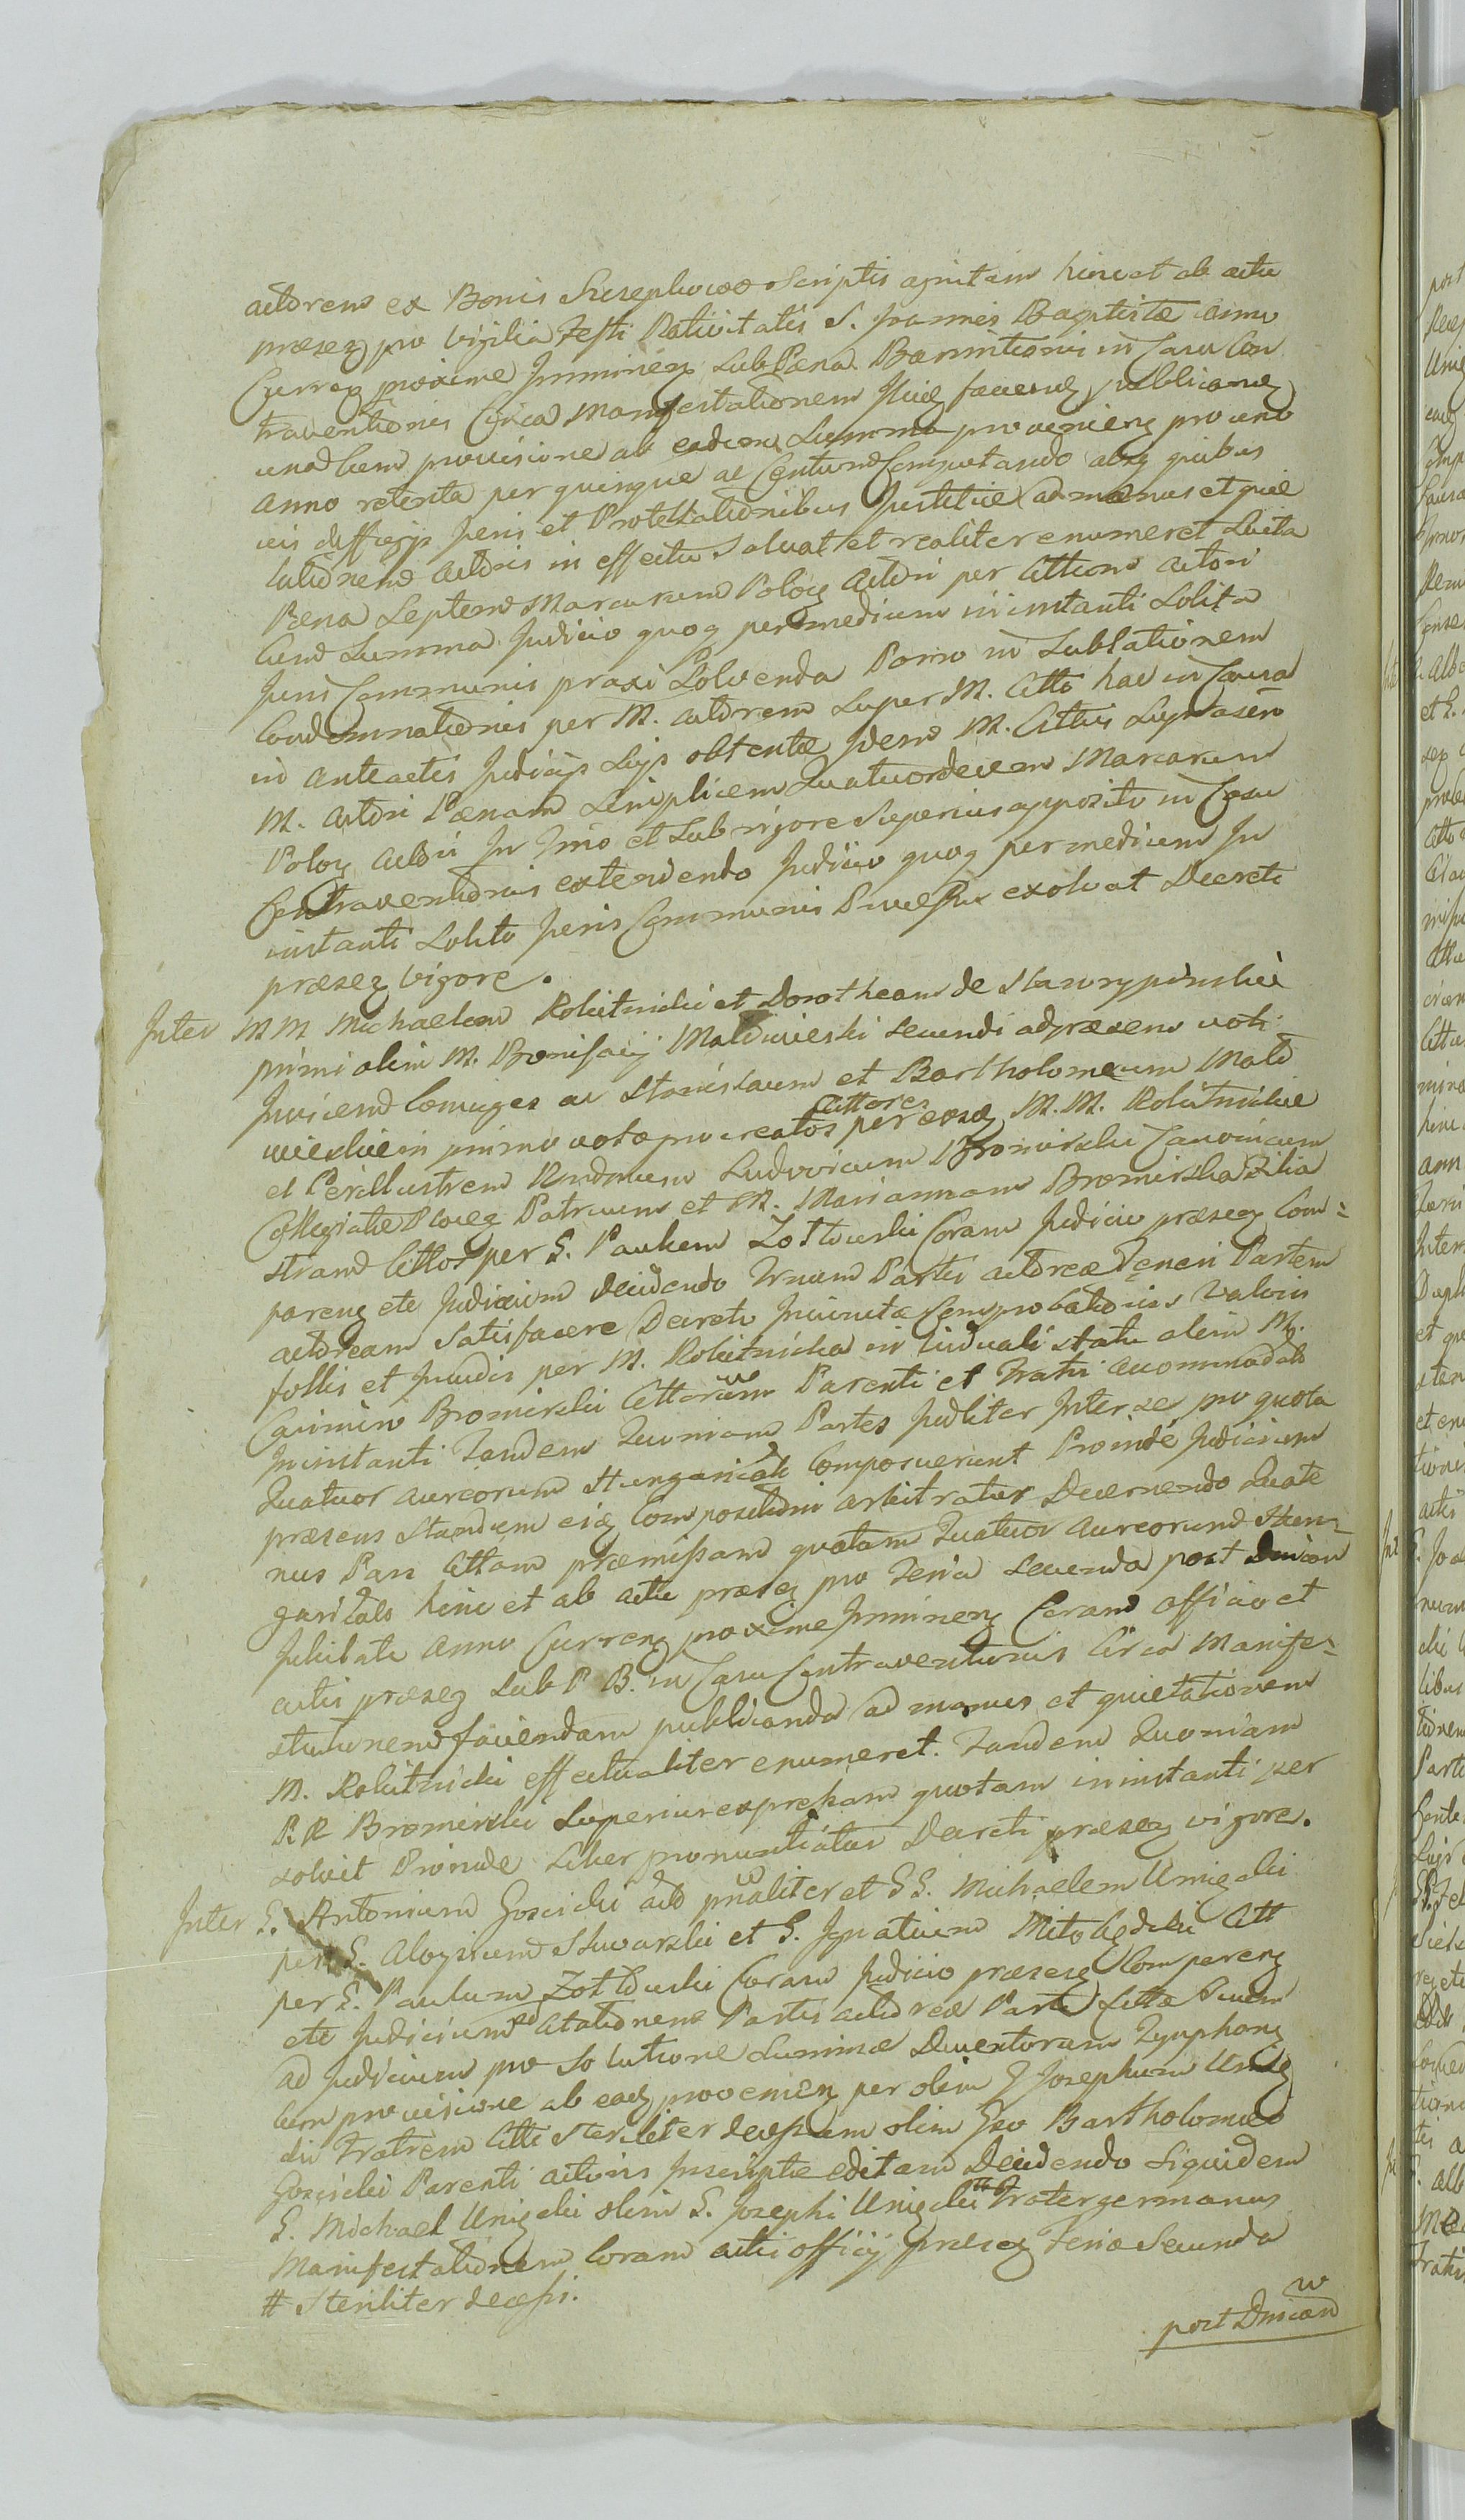 actorem ex Bonis Szczepkowo Scriptis agnitam hinc et ab actu
præseq pro vigilia Festi Nativitatis S. Joannis Baptistæ anno
Curreq proxime Imminēq Sub Pæna Bannitionis in Casu Con
traventionis Circa Manifestationem faciend publicand
una cum provisione ab eadem Summa provenienq pro uno
Anno retenta per quinque a Centum Computando absq quibus
vis diffugijs Juris et Protestationibus Justitiæ ad manus et quie
tationem actoris in effectu Solvat et realiter enumeret Luita
Pæna Septem Marcarum Polog Actori per Cittum Actori
cum Summa Judicio quoq per medium in instanti Solita
Juris Communis praxi Solvenda Porro in Sublationem
Condemnationis per M. actorem Super M. Citto hac in Causa
in anteactis Judicijs Sijs obtentæ Idem M. Cittus
M. Actori Pænam Simplicem Quatuordecem Marcarum
Polog Actori In Imo et Sub rigore Superius apposito in Casu
Contraventionis extendendo Judicio quoq per medium In
instanti Solito Juris Communis exolvat Decreti
præseq vigore.
Inter MM Michaelem Rokitnicki et Dorotheam de
primi olim M. Bonifacij Maldwieski Secundi ad præsens voti
Invicem Conjuges ac Stanislaum et Bartholomeum Mald
wieskie in primo voto procreatos Actores per eosq M.M. Rokitnickie
et Perillustrem Rndmum Ludovicum Bromirski Canonicum
Collegiatæ Patruum et M. Mariannam Bromirska Filia
stram Cittos per G. Paulum Zołtowski Coram Judicio præseq Com=
pareng etc Judicium Decidendo Partis actoreæ Teneri Partem
actoream Satisfacere Decreto Comprobationis Valoris
follis et per M. Rokitnicka in viduali statu olim M.
Casimiro Bromirski Cittorum Parenti et Fratri accommodati
In instanti Tandem Quoniam Partes Judliter Inter se pro quota
Quatuor aureorum Hungarical Composuerunt Proinde Judicium
præsens Standum eiq Compositioni arbitratur Decernendo Quate
nus Pars Citta præmissam quotam Quatuor Aureorum Hun=
garicals hinc et ab actu præseq pro Feria Secunda post Dnicam
Jubilate anno Curreng proxime Imminenq Coram officio et
actis præseq Sub P B. in Casu Contraventionis Circa Manife=
stationem faciendam publicanda ad manus et quietationem
M. Rokitnicki effectualiter enumeret. Tandem Quoniam
RR Bromirski Superius expressam quotam in instanti per
solvit Proinde Liber pronuntiatur Decreti præseq vigore.
Inter G. Antonium Goscicki actō prinaliter et GG. Michaelem Umięcki
per G. Aloysium Skwarski et G. Ignatium Mitolędzki Citt
per G. Paulum Zołtowski Coram Judicio præseq Compareng
etc Judicium ad Citationem Partis actoreæ Parti Cittæ Suum
ad Judicium pro Solutione Summæ Ducentorum Tynphonq
cum provisione ab eadq provenienq per olim G Josephum Umięc
ki Fratrem Citti Steriliter decessum olim Gso Bartholomæo
Goscicki Parenti actoris Inscriptæ editam Decidendo Siquidem
G. Michael Umięcki olim G. Josephi Umięcki # Frater germanus
Manifestationem Coram actis officij præseq Feria Secunda
# Steriliter decessi.
post Dnicam